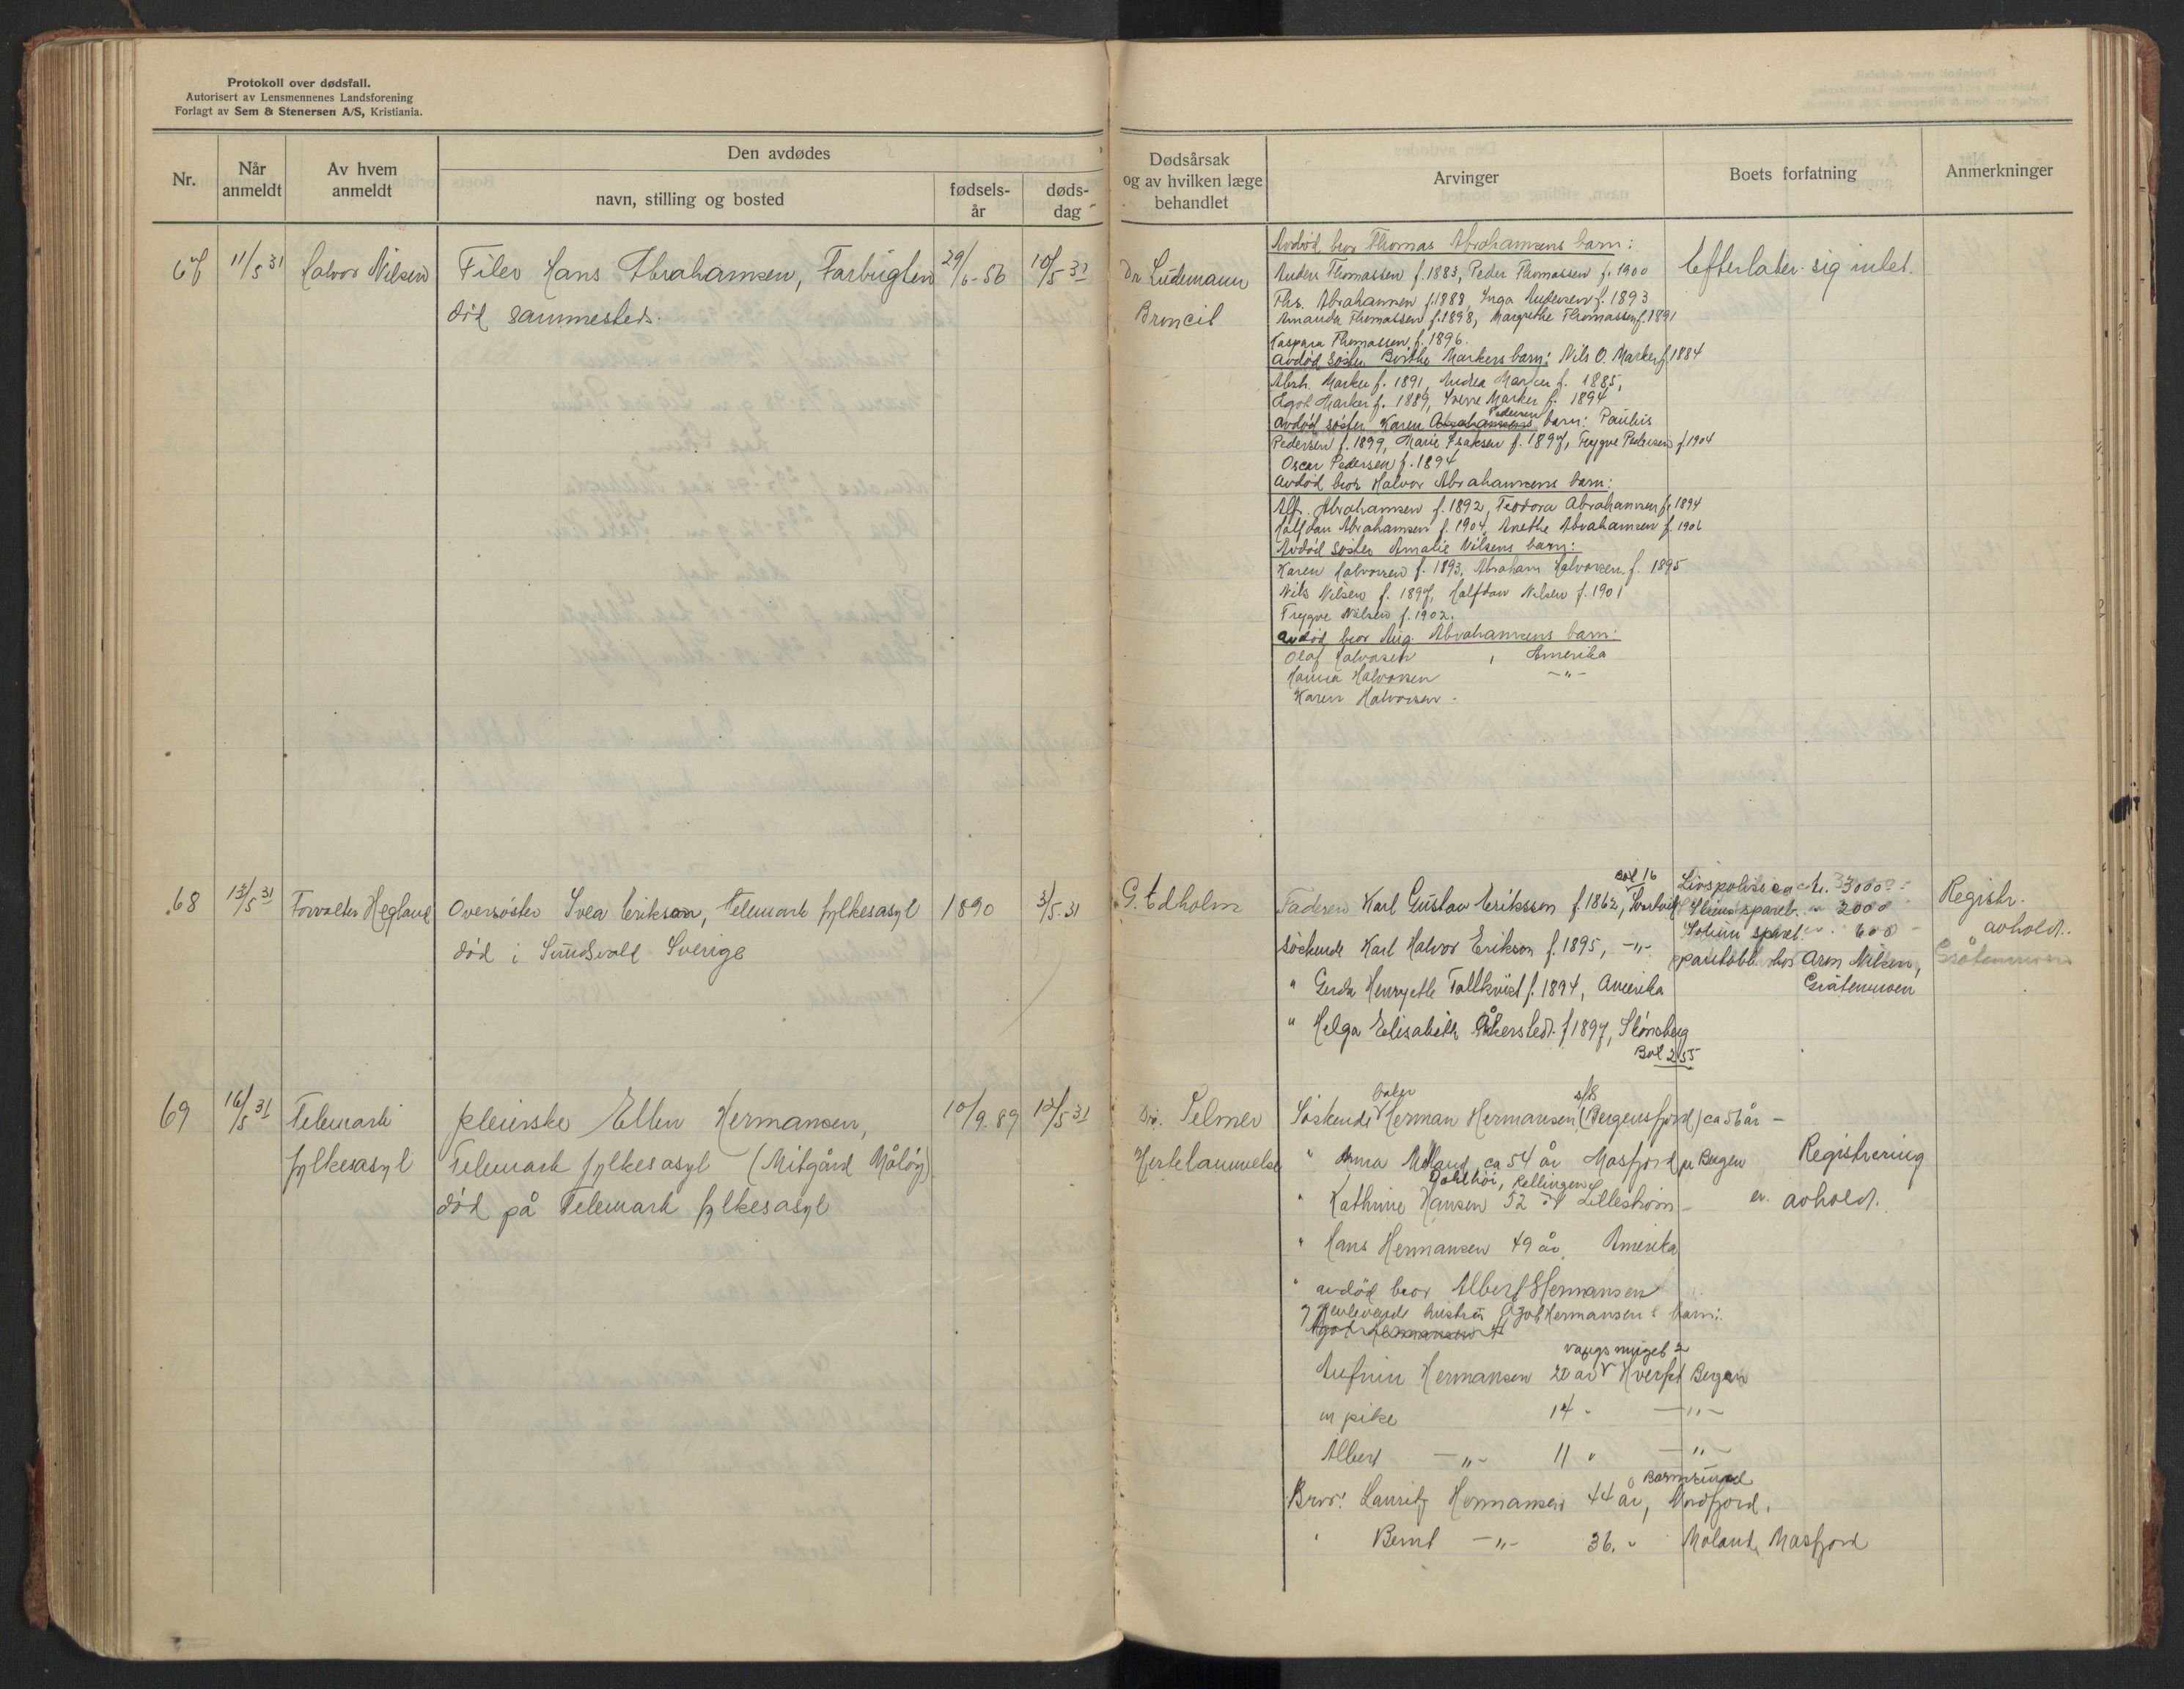 Protokoll over dødsfall.
Autorisert av Lensmennenes Landsforening
Forlagt av Sem & Stenersen A/S, Kristiania.
Nr.
Når anmeldt
Av hvem anmeldt
Den avdødes
navn, stilling og bosted
fødsels-år
døds-dag
Dødsårsak og av hvilken læge behandlet
Arvinger
Boets forfatning
Anmerkninger
67 11/5 31 Halvor Nilsen Filer Hans Abrahamsen, Farbugten 29/6-56 10/5 31
død sammesteds.
Dr Ludemann
Broncit
Avdød bror Thomas Abrahamsens barn:
Anders Thomassen f.1883, Peder Thomassen f. 1900
Ths. Abrahamsen f.1888, Inga Andersen f. 1893
Amanda Thomassen f.1898, Margrethe Thomassen f.1891
Kaspara Thomassen f. 1896.
Avdød søster Birthe Markers barn: Nils O. Marker f.1884
Abrh. Marker f. 1891, Andrea Marker f. 1885,
Egot Marker f. 1889, Sverre Marker f. 1894
Pedersen
Avdød søster Karen Abrahamsens barn: Paulus
Pedersen f. 1899, Marie Isaksen f. 1897, Trygve Pedersen f.1904
Oscar Pedersen f. 1894
Avdød bror Halvor Abrahamsens barn:
Alf. Abrahamsen f. 1892, Teodora Abrahamsen f. 1894
Halfdan Abrahamsen f. 1904, Anethe Abrahamsen f. 1906
Avdød søster Amalie Nilsens barn:
Karen Halvorsen f. 1893, Abraham Halvorsen f. 1895
Nils Nilsen f. 1897, Halfdan Nilsen f. 1901
Trygve Nilsen f. 1902.
Avdød bror Aug. Abrahamsens barn:
Olaf Halvorsen, Amerika
Hanna Halvorsen -"-
Karen Halvorsen -
Efterlater sig intet.
68 13/5 31 Forvalter Hegland Oversøster Svea Erikson, Telemark fylkesasyl 1890 3/5.31
død i Sundsvall Sverige
G. Edholm
Box 16
Faderen Karl Gustav Eriksson f. 1862, Svartvik
søskende Karl Halvor Erikson f. 1895, -"-
" Gerda Henryette Tallkvist f. 1894, Amerika
" Helga Elisabeth Åkerstedt f 1897, Skönsberg
Box 255
Livspolise ca kr. 3000 -
Skiens spareb. " 2000
Solum spareb. " 600 -
pantobl. hos Aron Nilsen,
Gråtenmoen
Registr.
avhold.
Gråtenmoen
69 16/5 31 Telemark fylkesasyl pleierske Ellen Hermansen, 10/9.89 12/5 31
Telemark fylkesasyl (Mitgård Måløy)
død på Telemark fylkesasyl
Dr. Selmer
Hjertelammelse
s/s
Søskende Herman Hermansen (Bergensfjord) ca 56 år -
" Anna Møland ca 54 år Masfjord pr Bergen
" Kathrine Hansen 52 år Lillestrøm -
" Hans Hermansen 49 år. Amerika
" avdød bror Albert Hermansen
barn:
Hermansen 20 år Bergen
en pike 14 " -"-
Albert -"- 11 " -"-
Bror: Lauritz Hermansen 44 år, Nordfjord.
" Bernt -"- 36. " Møland, Masfjord
Registrering
er avholdt.